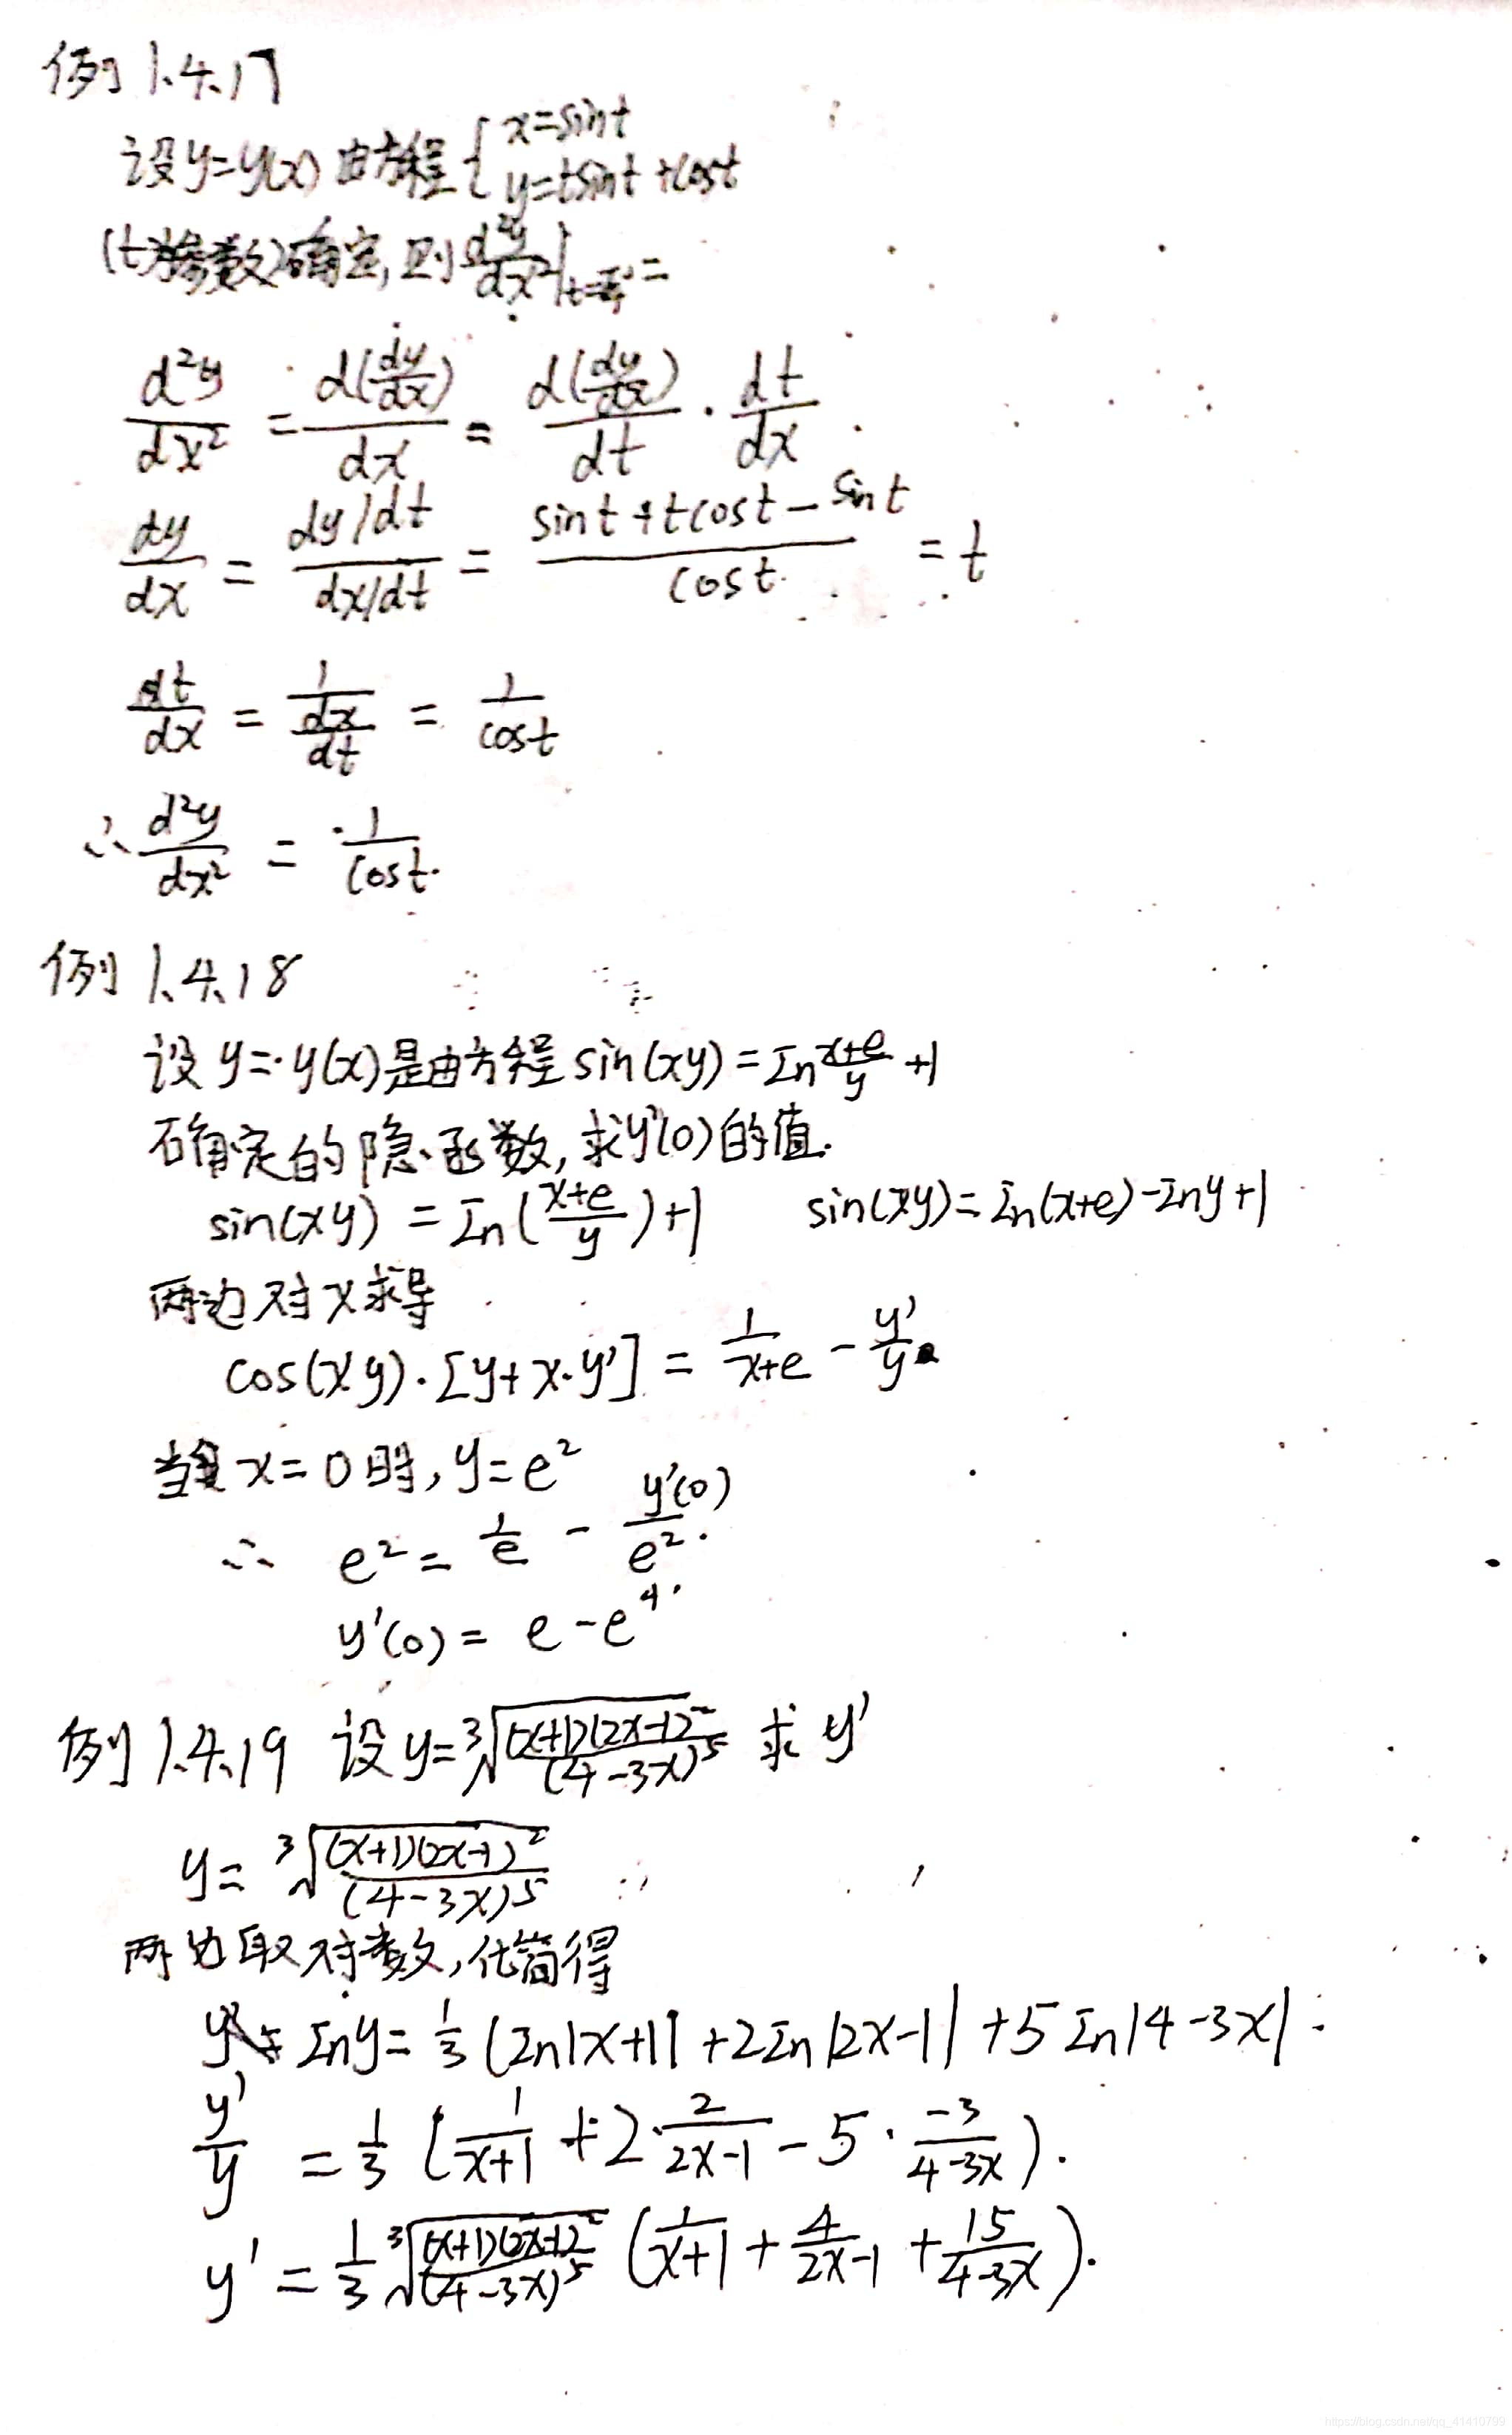 例 1.4.17
设y=y(x) 由方程 { x=sint
y=tsint+cost
(t为参数)确定,则 d²y/dx²|t=π/4 =
d²y/dx² = d(dy/dx)/dx = d(dy/dx)/dt · dt/dx
dy/dx = (dy/dt)/(dx/dt) = (sint+tcost-sint)/cost = t
dt/dx = 1/(dx/dt) = 1/cost
∴ d²y/dx² = 1/cost
例 1.4.18
设 y=y(x)是由方程 sin(xy)=In (x+e)/y +1
确定的隐函数,求y'(0)的值.
sin(xy) = In((x+e)/y)+1 sin(xy)=In(x+e)-Iny+1
两边对x求导
cos(xy)·[y+x·y'] = 1/(x+e) - y'/y
当 x=0时,y=e²
∴ e² = 1/e - y'(0)/e².
y'(0) = e-e⁴
例 1.4.19 设 y=³√((x+1)(2x-1)²/(4-3x)⁵) 求 y'
y= ³√((x+1)(2x-1)²/(4-3x)⁵)
两边取对数,化简得
Iny= 1/3 (In|x+1| +2In|2x-1| +5In|4-3x|
y'/y = 1/3 (1/(x+1) +2·2/(2x-1) -5·(-3)/(4-3x)).
y' = 1/3 ³√((x+1)(2x-1)²/(4-3x)⁵) (1/(x+1) + 4/(2x-1) + 15/(4-3x)).
https://blog.csdn.net/qq_41410799